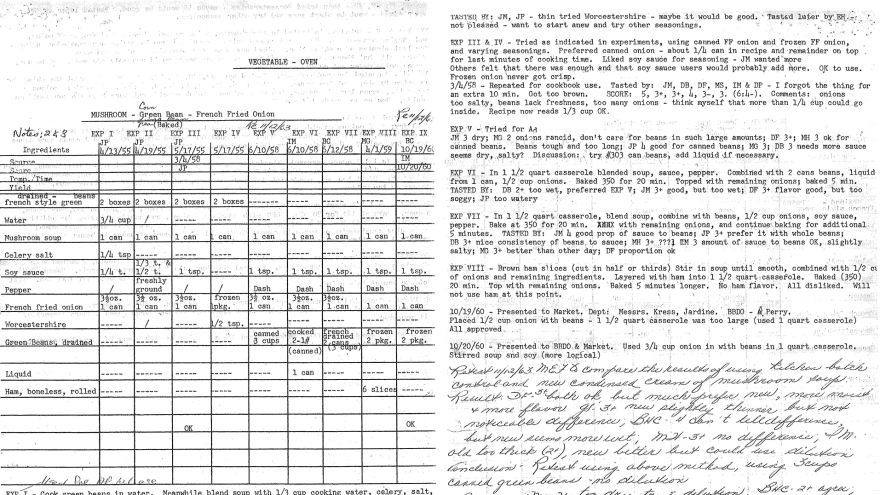 VEGETABLE - OVEN
Corn
MUSHROOM - Green Bean - French Fried Onion
(Baked)
Notes; 2 & 3 EXP I EXP II EXP III EXP IV EXP V EXP VI EXP VII EXP VIII EXP IX
JP JP JP IM BC MG BC
Ingredients 4/13/55 4/19/55 5/17/55 5/17/55 6/10/58 6/10/58 6/12/58 4/1/59 10/19/60
Source 3/4/58 IM
Score JP 10/20/60
Temp./Time
Yield
drained - beans
french style green 2 boxes 2 boxes 2 boxes 2 boxes ----- ----- ----- ----- -----
Water 3/4 cup / ----- ----- ----- ----- ----- ----- -----
Mushroom soup 1 can 1 can 1 can 1 can 1 can 1 can 1 can 1 can 1 can
Celery salt 1/4 tsp ----- ----- ----- ----- ----- ----- ----- -----
1/3 t. &
Soy sauce 1/4 t. 1/2 t. 1 tsp. ----- 1 tsp. 1 tsp. 1 tsp. 1 tsp. 1 tsp.
freshly
Pepper / ground / / Dash Dash Dash Dash Dash
3½oz. 3½ oz. 3½oz. frozen 3½ oz. 3½oz.
French fried onion 1 can 1 can 1 can 1pkg. 1 can 1 can 1 can 1 can 1 can
Worcestershire ----- / ----- 1/2 tsp. ----- ----- ----- ----- -----
canned cooked french frozen frozen
Green Beans, drained ----- ----- ----- ----- 3 cups 2-1# drained 2 cans 2 pkg. 2 pkg.
(canned) (3 cups)
Liquid ----- ----- ----- ----- ----- 1 can ----- ----- -----
Ham, boneless, rolled ----- ----- ----- ----- ----- ----- ----- 6 slices -----
OK OK
EXP I - Cook green beans in water. Meanwhile blend soup with 1/3 cup cooking water, celery, salt,
TASTED BY: JM, JP - thin tried Worcestershire - maybe it would be good. Tasted later by
not pleased - want to start anew and try other seasonings.
EXP III & IV - Tried as indicated in experiments, using canned FF onion and frozen FF onion,
and varying seasonings. Preferred canned onion - about 1/4 can in recipe and remainder on top
for last minutes of cooking time. Liked soy sauce for seasoning - JM wanted more
Others felt that there was enough and that soy sauce users would probably add more. OK to use.
Frozen onion never got crimp.
3/4/58 - Repeated for cookbook use. Tasted by: JM, DB, DF, MS, IM & DF - I forgot the thing for
an extra 10 min. Got too brown. SCORE: 5, 3+, 3+, 4, 3-, 3. (6:4-). Comments: onions
too salty, beans lack freshness, too many onions - think myself that more than 1/4 cup could go
inside. Recipe now reads 1/3 cup OK.
EXP V - Tried for Ad
JM 3 dry; MG 2 onions rancid, don't care for beans in such large amounts; DF 3+; MH 3 ok for
canned beans. Beans tough and too long; JP 4 good for canned beans; MG 3; DB 3 needs more sauce
seems dry, salty? Discussion: try #303 can beans, add liquid if necessary.
EXP VI - In 1 1/2 quart casserole blended soup, sauce, pepper. Combined with 2 cans beans, liquid
from 1 can, 1/2 cup onions. Baked 350 for 20 min. Topped with remaining onions; baked 5 min.
TASTED BY: DB 2+ too wet, preferred EXP V; JM 3+ good, but too wet; DF 3+ flavor good, but too
soggy; JP too watery
EXP VII - In 1 1/2 quart casserole, blend soup, combine with beans, 1/2 cup onions, soy sauce,
pepper. Bake at 350 for 20 min. XXXX with remaining onions, and continue baking for additional
5 minutes. TASTED BY: JM 4 good prop of sauce to beans; JP 3+ prefer it with whole beans;
DB 3+ nice consistency of beans to sauce; MH 3+ ???1 IM 3 amount of sauce to beans OK, slightly
salty; MG 3+ better than other day; DF proportion ok
EXP VIII - Brown ham slices (cut in half or thirds) Stir in soup until smooth, combined with 1/2 cu
of onions and remaining ingredients. Layered with ham into 1 1/2 quart casserole. Baked (350)
20 min. Top with remaining onions. Baked 5 minutes longer. No ham flavor. All disliked. Will
not use ham at this point.
10/19/60 - Presented to Market. Dept: Messrs. Kress, Jardine. BRDO - Perry.
Placed 1/2 cup onion with beans - 1 1/2 quart casserole was too large (used 1 quart casserole)
All approved
10/20/60 - Presented to BRDO & Market. Used 3/4 cup onion in with beans in 1 quart casserole.
Stirred soup and soy (more logical)
Retest 11/12/63 MEJ to compare the results of using kitchen batch
control and new condensed cream of mushroom soup
Result: DF 3+ both ok but much prefer new, more moist
& more flavor 3+ new slightly thinner but not
noticeable difference; BHC 4 can't tell difference,
but new seems more wet, 3+ no difference; I.M.
old too thick (2+), new better but could use dilution
Conclusion - Retest using above method, using 3 cups
canned green beans no dilution